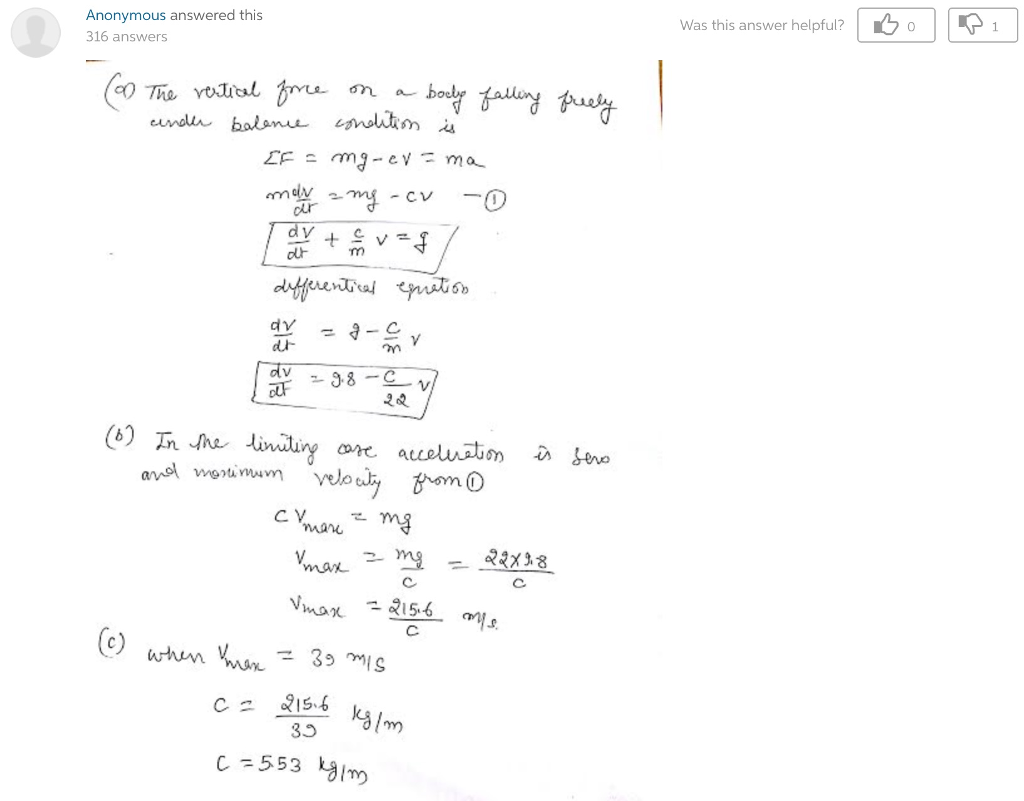 Anonymous answered this
316 answers
Was this answer helpful?
0
1
(a) The vertical force on a body falling freely
under balance condition is
ΣF = mg - cv = ma
m dv/dt = mg - cv — ①
dv/dt + c/m v = g
differential equation
dv/dt = g - c/m v
dv/dt = 9.8 - c/22 v
(b) In the limiting case acceleration is zero
and maximum velocity from ①
C Vmax = mg
Vmax = mg/c = 22×9.8/c
Vmax = 215.6/c m/s.
(c) when Vmax = 39 m/s
C = 215.6/39 kg/m
C = 5.53 kg/m